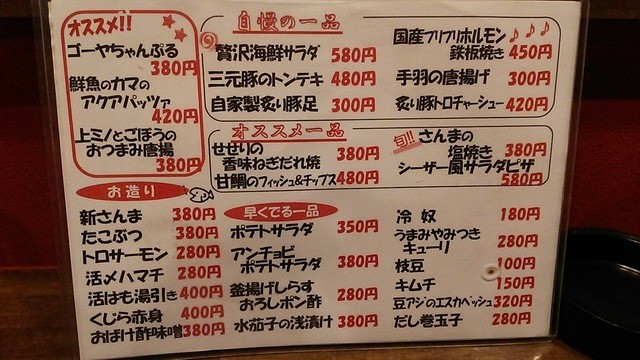 オススメ!!
ゴーヤちゃんぷる
380円
鮮魚のカマの
アクアパッツァ
420円
上ミノとごぼうの
おつまみ唐揚
380円
自慢の一品
贅沢海鮮サラダ 580円
三元豚のトンテキ 480円
自家製炙り豚足 300円
国産プリプリホルモン♪♪♪
鉄板焼き 450円
手羽の唐揚げ 300円
炙り豚トロチャーシュー 420円
オススメ一品
せせりの
香味ねぎだれ焼 380円
甘鯛のフィッシュ&チップス 480円
旬!! さんまの
塩焼き 380円
シーザー風サラダピザ
580円
お造り
新さんま 380円
たこぶつ 380円
トロサーモン 280円
活〆ハマチ 280円
活はも湯引き 400円
くじら赤身 400円
おばけ酢味噌 380円
早くでる一品
ポテトサラダ 350円
アンチョビ
ポテトサラダ 380円
釜揚げしらす
おろしポン酢 280円
水茄子の浅漬け 380円
冷奴 180円
うまみやみつき
キューリ 280円
枝豆 100円
キムチ 150円
豆アジのエスカベッシュ 320円
だし巻玉子 280円